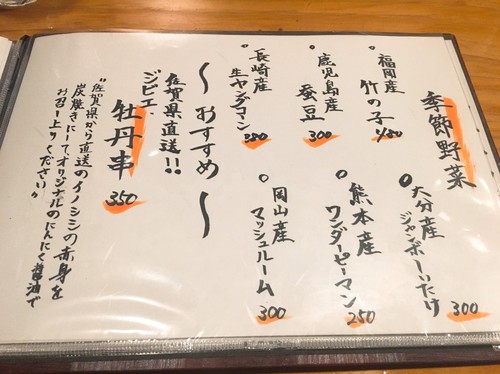 季節野菜
福岡産
竹の子
450
鹿児島産
蚕豆
300
長崎産
生ヤングコーン
350
大分産
ジャンボしいたけ
300
熊本産
ワンダーピーマン
250
岡山産
マッシュルーム
300
〜おすすめ〜
佐賀県直送!!
ジビエ
牡丹串
350
"佐賀県から直送のイノシシの赤身を
炭焼きにしてオリジナルのにんにく醤油で
お召し上りください"